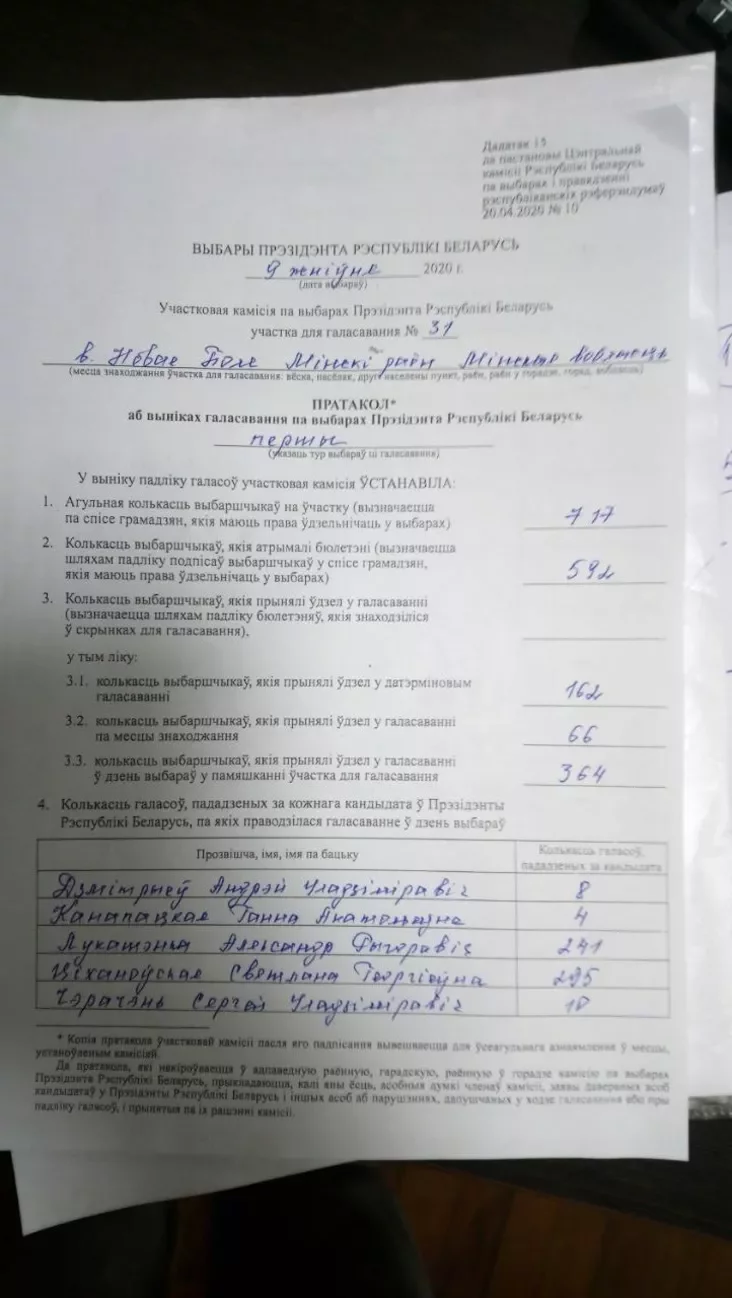 Дадатак 15
да пастановы Цэнтральнай
камісіі Рэспублікі Беларусь
па выбарах і правядзенні
рэспубліканскіх рэферэндумаў
20.04.2020 № 10
ВЫБАРЫ ПРЭЗІДЭНТА РЭСПУБЛІКІ БЕЛАРУСЬ
9 жніўня 2020 г.
(дата выбараў)
Участковая камісія па выбарах Прэзідэнта Рэспублікі Беларусь
участка для галасавання № 31
в. Новае Поле Мінскі раён Мінская вобласць
(месца знаходжання ўчастка для галасавання: вёска, пасёлак, другі населены пункт, раён, раён у горадзе, горад, вобласць)
ПРАТАКОЛ*
аб выніках галасавання па выбарах Прэзідэнта Рэспублікі Беларусь
першы
(указаць тур выбараў ці галасавання)
У выніку падліку галасоў участковая камісія ЎСТАНАВІЛА:
1. Агульная колькасць выбаршчыкаў на ўчастку (вызначаецца
па спісе грамадзян, якія маюць права ўдзельнічаць у выбарах) 717
2. Колькасць выбаршчыкаў, якія атрымалі бюлетэні (вызначаецца
шляхам падліку подпісаў выбаршчыкаў у спісе грамадзян,
якія маюць права ўдзельнічаць у выбарах) 592
3. Колькасць выбаршчыкаў, якія прынялі ўдзел у галасаванні
(вызначаецца шляхам падліку бюлетэняў, якія знаходзіліся
ў скрынках для галасавання),
у тым ліку:
3.1. колькасць выбаршчыкаў, якія прынялі ўдзел у датэрміновым
галасаванні 162
3.2. колькасць выбаршчыкаў, якія прынялі ўдзел у галасаванні
па месцы знаходжання 66
3.3. колькасць выбаршчыкаў, якія прынялі ўдзел у галасаванні
ў дзень выбараў у памяшканні ўчастка для галасавання 364
4. Колькасць галасоў, пададзеных за кожнага кандыдата ў Прэзідэнты
Рэспублікі Беларусь, па якіх праводзілася галасаванне ў дзень выбараў
Прозвішча, імя, імя па бацьку Колькасць галасоў,
пададзеных за кандыдата
Дзмітрыеў Андрэй Уладзіміравіч 8
Канапацкая Ганна Анатольеўна 4
Лукашэнка Аляксандр Рыгоравіч 241
Ціханоўская Святлана Георгіеўна 295
Чэрачэнь Сергей Уладзіміравіч 10
* Копія пратакола ўчастковай камісіі пасля яго падпісання вывешваецца для ўсеагульнага азнаямлення ў месцы,
устаноўленым камісіяй.
Да пратакола, які накіроўваецца ў адпаведную раённую, гарадскую, раённую ў горадзе камісію па выбарах
Прэзідэнта Рэспублікі Беларусь, прыкладаюцца, калі яны ёсць, асобныя думкі членаў камісіі, заявы давераных асоб
кандыдатаў у Прэзідэнты Рэспублікі Беларусь і іншых асоб аб парушэннях, дапушчаных у ходзе галасавання або пры
падліку галасоў, і прынятыя па іх рашэнні камісіі.